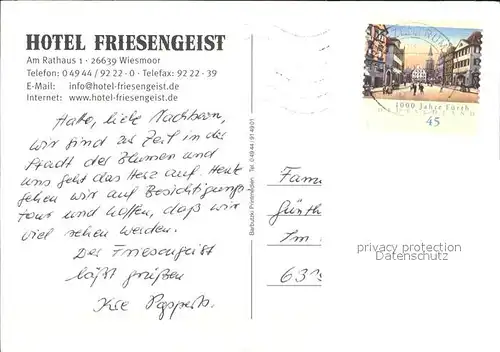 HOTEL FRIESENGEIST
Am Rathaus 1 · 26639 Wiesmoor
Telefon: 0 49 44 / 92 22 - 0 · Telefax: 92 22 - 39
E-Mail: info@hotel-friesengeist.de
Internet: www.hotel-friesengeist.de
1000 Jahre Fürth
45
liebe Nachbarn,
wir sind zur Zeit in der
Stadt der Blumen und
uns geht das Herz auf. Heute
gehen wir auf Besichtigungs
tour und hoffen, daß wir
viel sehen werden.
Der Friesengeist
läßt grüßen
Fam
Günth
Im
privacy protection
Datenschutz